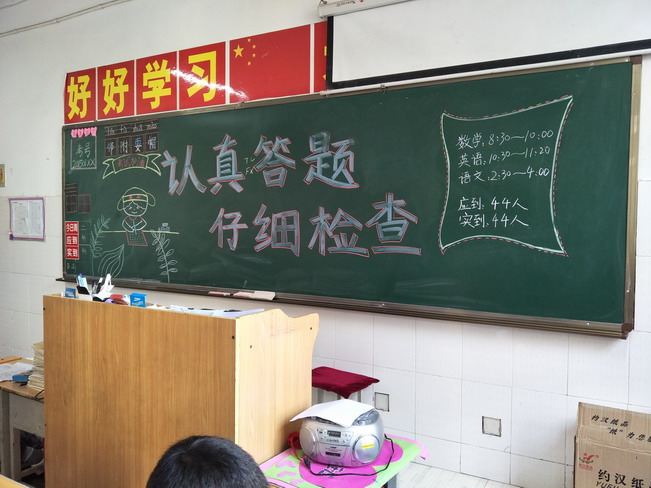 好好学习
考号
认真答题
仔细检查
数学: 8:30—10:00
英语: 10:30—11:20
语文: 2:30—4:00
应到: 44人
实到: 44人
今日周
应到
实到
约汉纸品
约汉纸